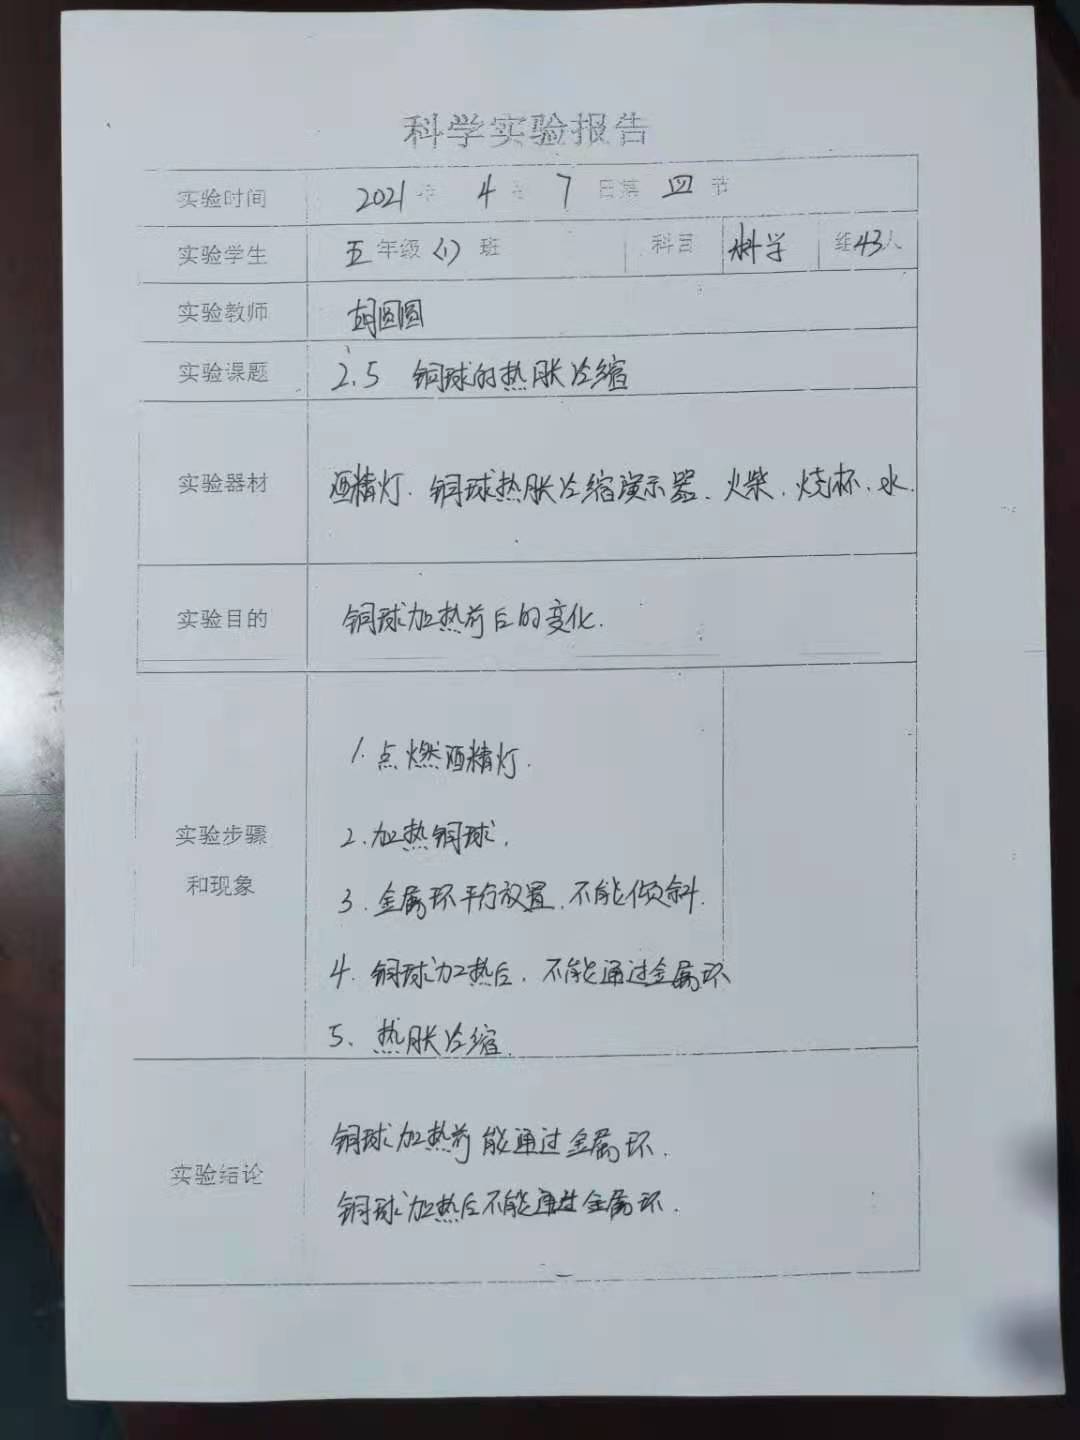 科学实验报告
实验时间 2021年 4月 7日第 四 节
实验学生 五年级(1)班 科目 科学 组43人
实验教师 胡圆圆
实验课题 2.5 铜球的热胀冷缩
实验器材 酒精灯、铜球热胀冷缩演示器、火柴、烧杯、水.
实验目的 铜球加热前后的变化.
实验步骤
和现象
1.点燃酒精灯.
2.加热铜球.
3.金属环平行放置.不能倾斜.
4.铜球加热后.不能通过金属环
5、热胀冷缩.
实验结论
铜球加热前能通过金属环.
铜球加热后不能通过金属环.